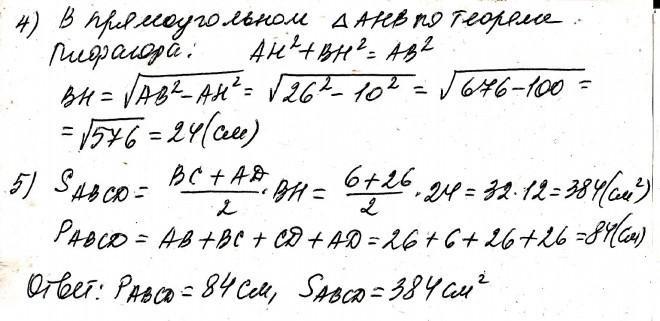 4) В прямоугольном △AHB по теореме
Пифагора: AH² + BH² = AB²
BH = √(AB² − AH²) = √(26² − 10²) = √(676 − 100) =
= √576 = 24 (см)
5) S_ABCD = (BC + AD)/2 · BH = (6 + 26)/2 · 24 = 32 · 12 = 384 (см²)
P_ABCD = AB + BC + CD + AD = 26 + 6 + 26 + 26 = 84 (см)
Ответ: P_ABCD = 84 см, S_ABCD = 384 см²